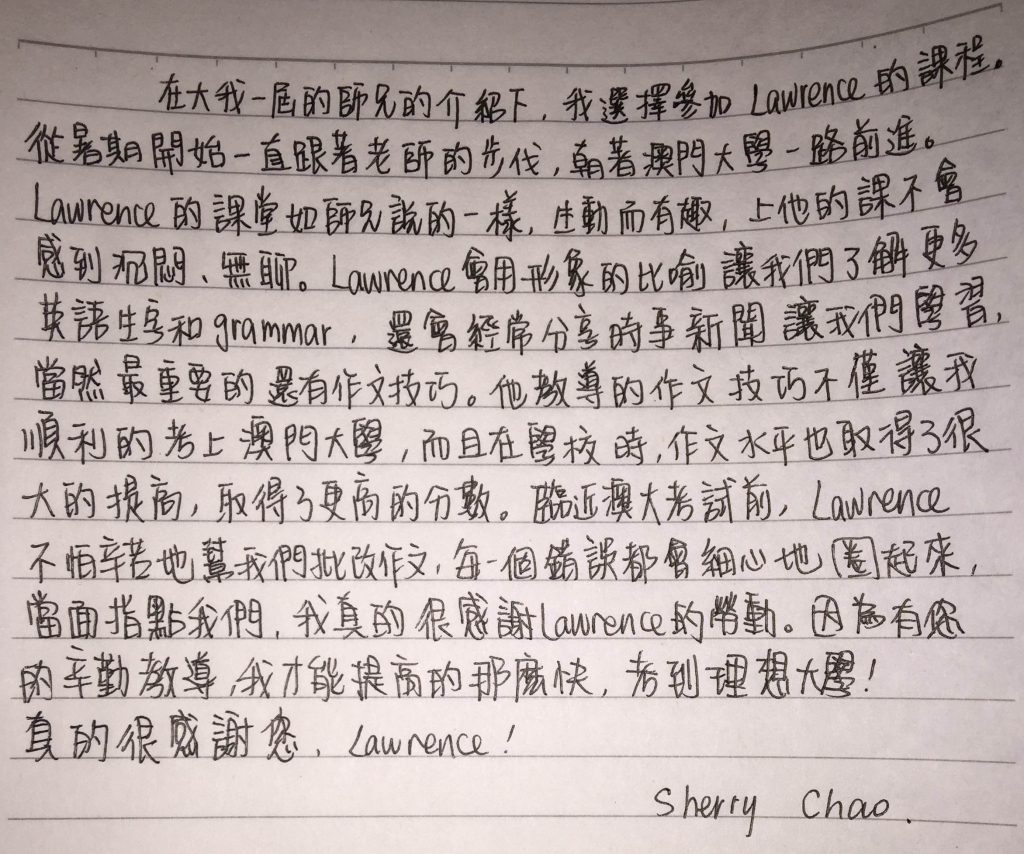 在大我一屆的師兄的介紹下，我選擇參加 Lawrence 的課程。
從暑期開始一直跟著老師的步伐，朝著澳門大學一路前進。
Lawrence 的課堂如師兄說的一樣，生動而有趣，上他的課不會
感到沉悶、無聊。Lawrence會用形象的比喻讓我們了解更多
英語生字和grammar，還會經常分享時事新聞讓我們學習，
當然最重要的還有作文技巧。他教導的作文技巧不僅讓我
順利的考上澳門大學，而且在學校時，作文水平也取得了很
大的提高，取得了更高的分數。臨近澳大考試前，Lawrence
不怕辛苦地幫我們批改作文，每一個錯誤都會細心地圈起來，
當面指點我們，我真的很感謝Lawrence的勞動。因為有您
的辛勤教導，我才能提高的那麼快，考到理想大學！
真的很感謝您，Lawrence！
Sherry Chao.